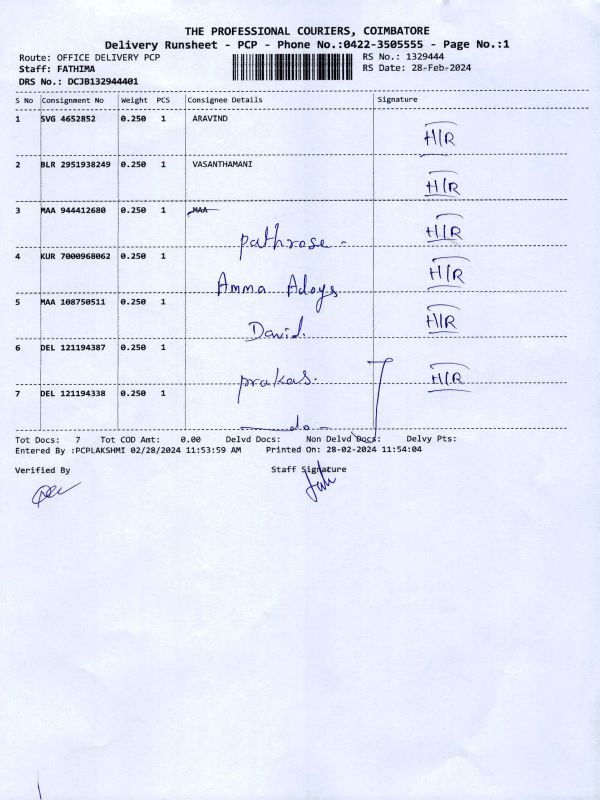 THE PROFESSIONAL COURIERS, COIMBATORE
Delivery Runsheet - PCP - Phone No.:0422-3505555 - Page No.:1
Route: OFFICE DELIVERY PCP RS No.: 1329444
Staff: FATHIMA RS Date: 28-Feb-2024
DRS No.: DCJB132944401
S No Consignment No Weight PCS Consignee Details Signature
1 SVG 4652852 0.250 1 ARAVIND H/R
2 BLR 2951938249 0.250 1 VASANTHAMANI H/R
3 MAA 944412680 0.250 1 MAA pathrose - H/R
4 KUR 7000968062 0.250 1 Amma Adoys H/R
5 MAA 108750511 0.250 1 David. H/R
6 DEL 121194387 0.250 1 prakas. H/R
7 DEL 121194338 0.250 1 —do—
Tot Docs: 7 Tot COD Amt: 0.00 Delvd Docs: Non Delvd Docs: Delvy Pts:
Entered By :PCPLAKSHMI 02/28/2024 11:53:59 AM Printed On: 28-02-2024 11:54:04
Verified By Staff Signature